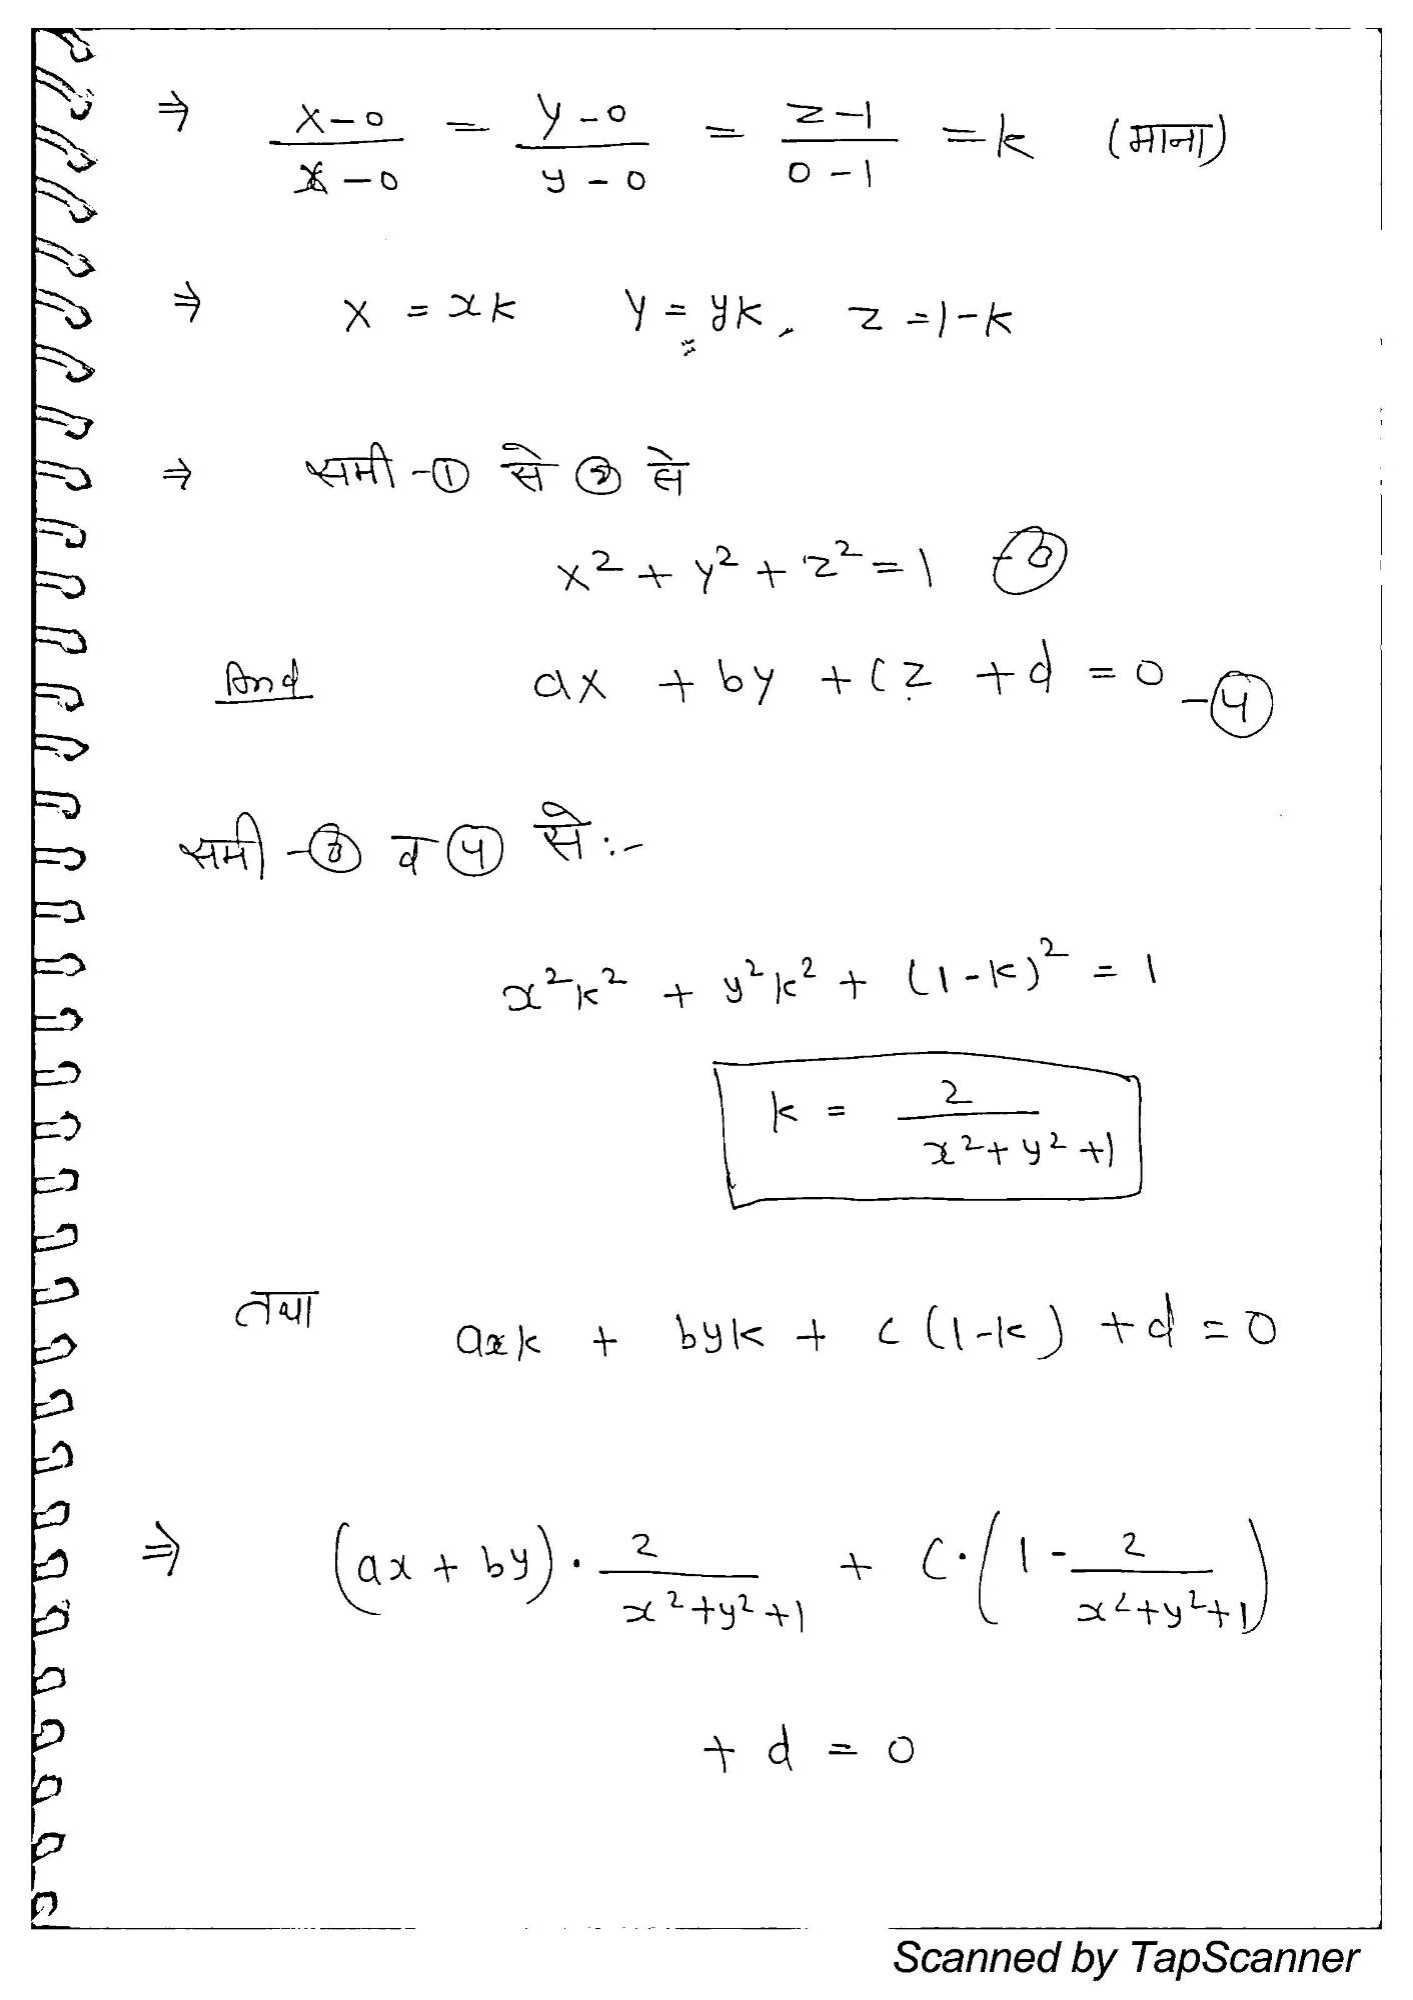 ⇒ (X-0)/(x-0) = (Y-0)/(y-0) = (Z-1)/(0-1) = k (माना)
⇒ X = xk Y = yk, Z = 1-k
⇒ समी-① से ② से
X² + Y² + Z² = 1 -③
And aX + bY + cZ + d = 0 -④
समी-③ व ④ से :-
x²k² + y²k² + (1-k)² = 1
k = 2/(x²+y²+1)
तथा axk + byk + c(1-k) + d = 0
⇒ (ax + by) · 2/(x²+y²+1) + c·(1 - 2/(x²+y²+1))
+ d = 0
Scanned by TapScanner